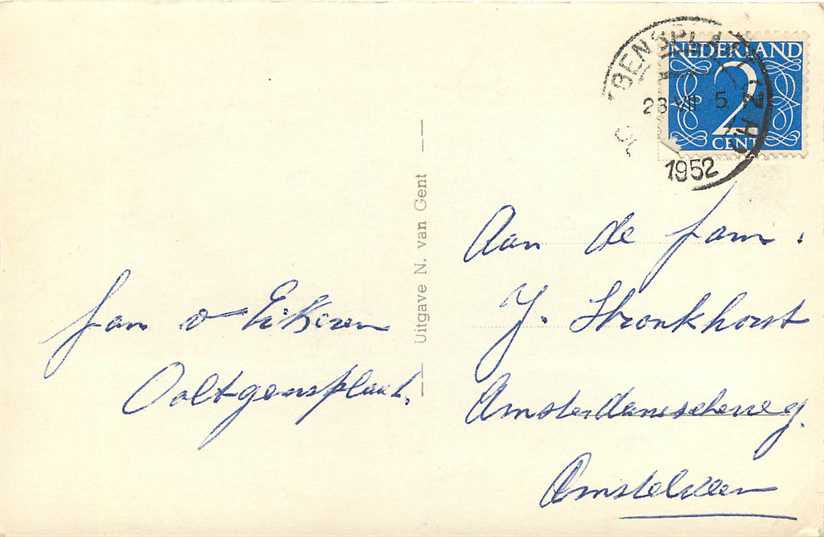 NEDERLAND
2
CENT
1952
Uitgave N. van Gent
Fam v Eikeren
Ooltgensplaat.
Aan de fam.
J. Stronkhorst
Amsterdamscheweg.
Amstelveen